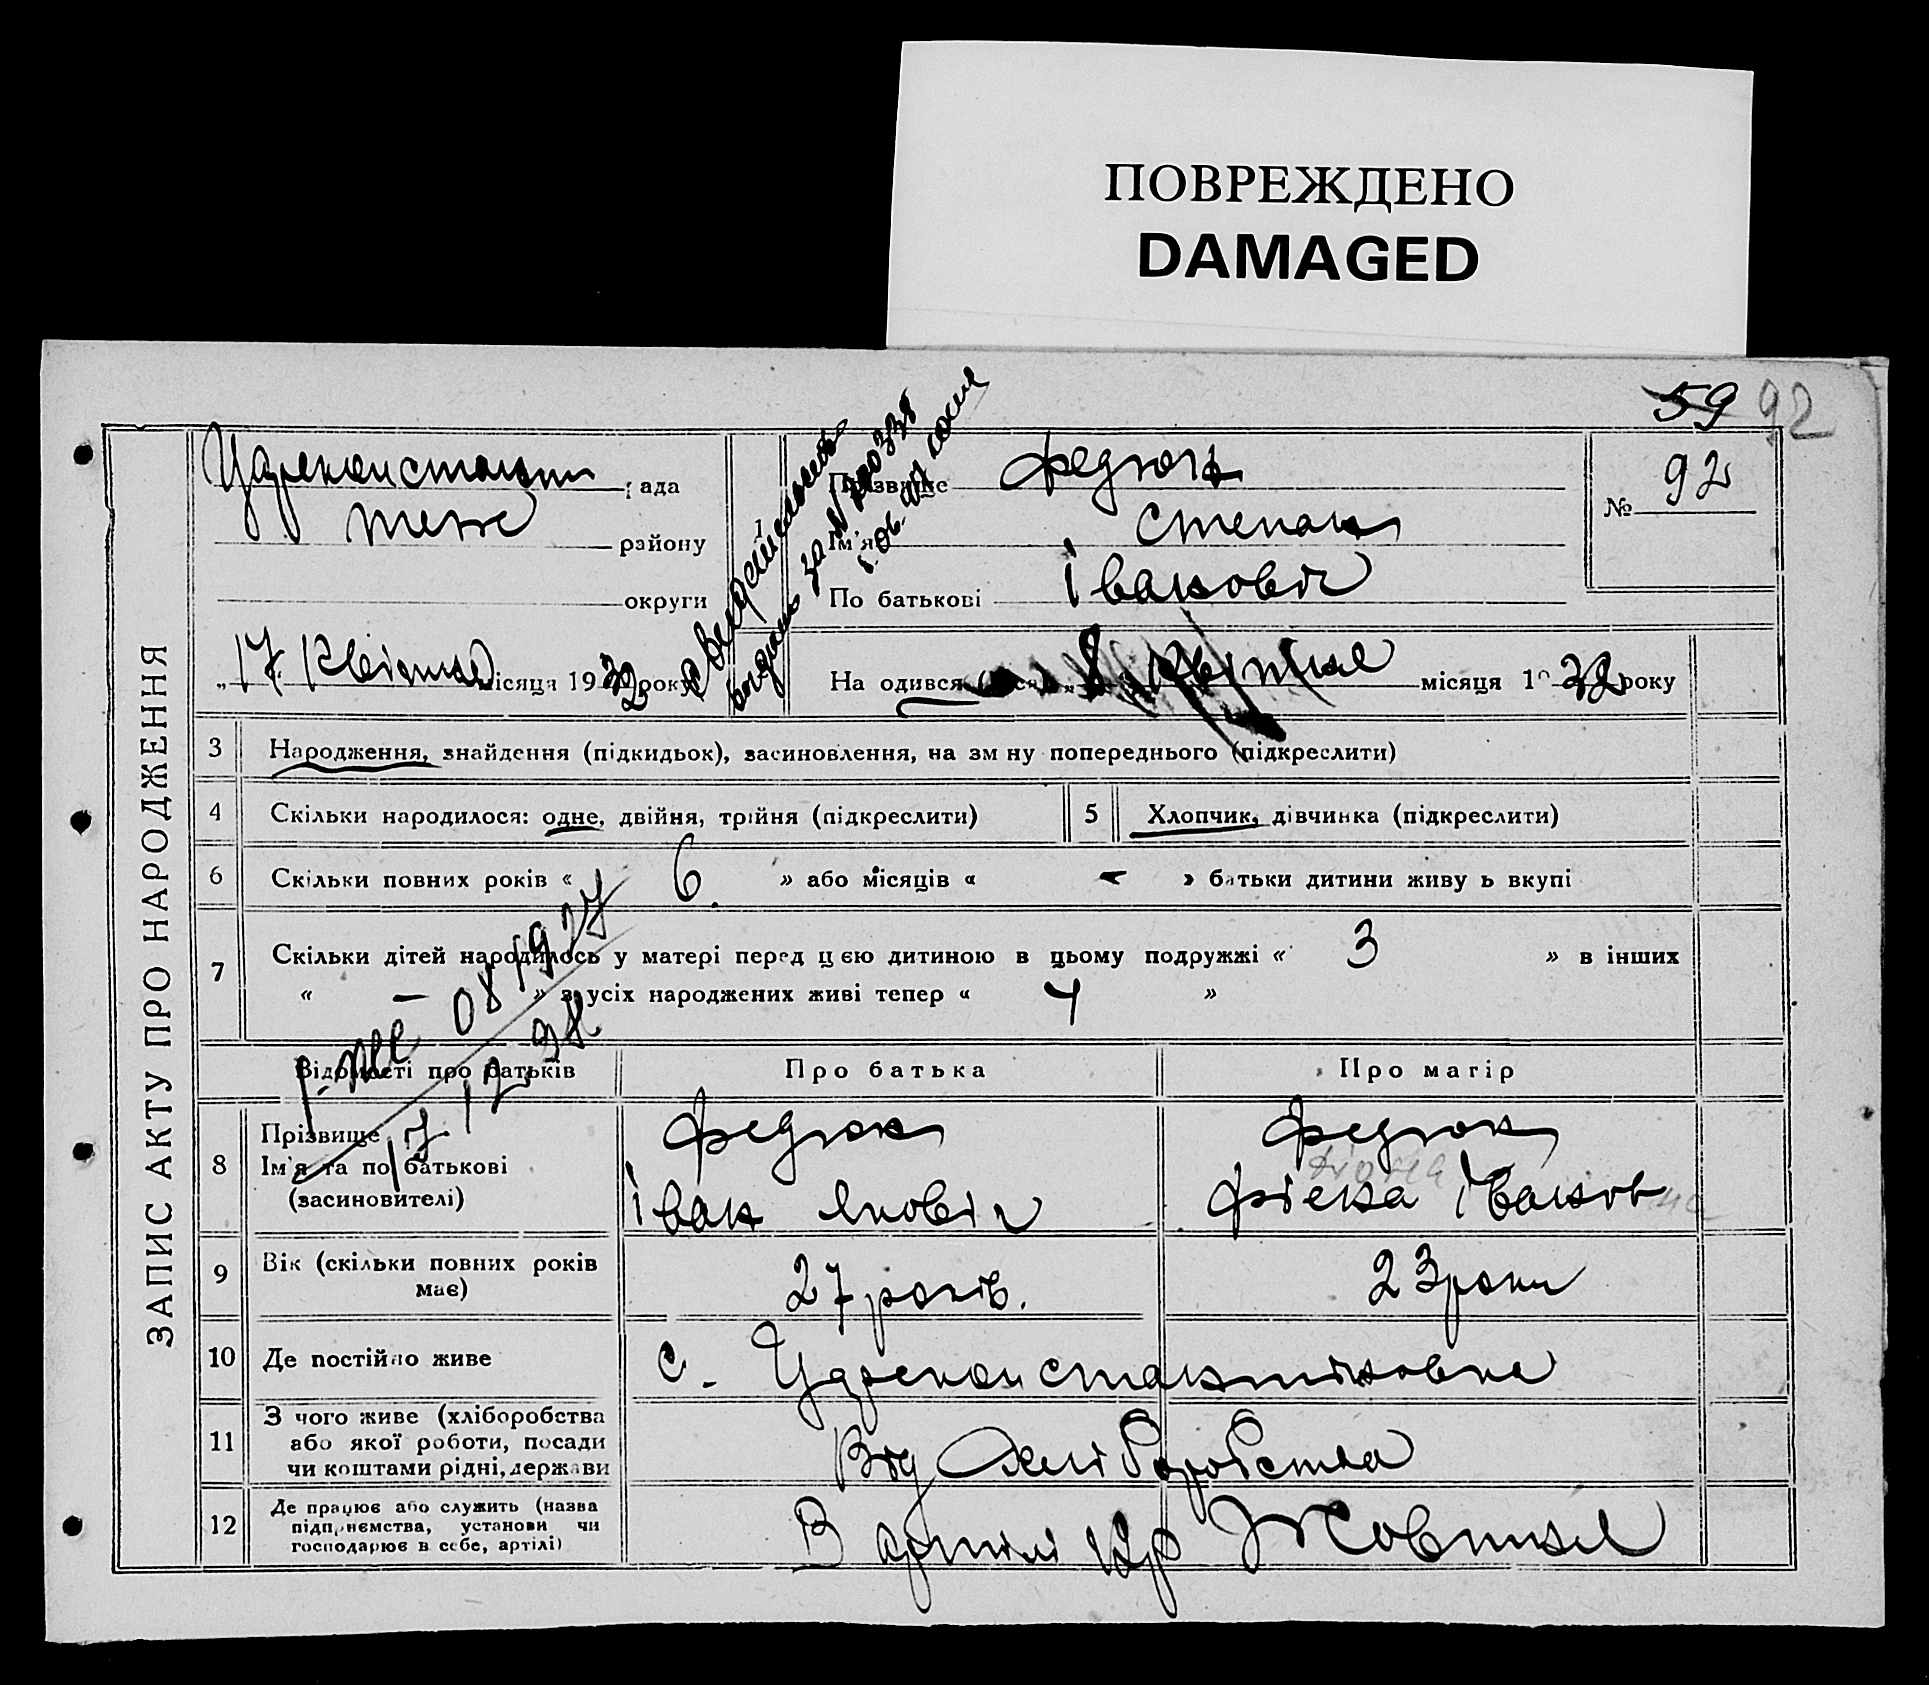 ПОВРЕЖДЕНО
DAMAGED
59 92
ЗАПИС АКТУ ПРО НАРОДЖЕННЯ
рада
району
округи
Прізвище Федюк
Ім'я Степан
По батькові Іванович
№ 92
„17 Квітня місяця 1932 року
Народився 8 Квітня місяця 1932 року
3 Народження, знайдення (підкидьок), засиновлення, на зміну попереднього (підкреслити)
4 Скільки народилося: одне, двійня, трійня (підкреслити)
5 Хлопчик, дівчинка (підкреслити)
6 Скільки повних років « 6 » або місяців « - » батьки дитини живуть вкупі
7 Скільки дітей народилось у матері перед цією дитиною в цьому подружжі « 3 » в інших
« — » з усіх народжених живі тепер « 4 »
I-ЖС 081927
17 12 98
Відомості про батьків Про батька Про матір
8 Прізвище
Ім'я та по батькові
(засиновителі)
Федюк
Іван Яковіч
Федюк
Фіекла Іванов
9 Вік (скільки повних років
має)
27 років.
23 роки
10 Де постійно живе
с. Цареконстантиновка
11 З чого живе (хліборобства
або якої роботи, посади
чи коштами рідні, держави
Від Хліборобства
12 Де працює або служить (назва
підприємства, установи чи
господарює в себе, артілі)
В артілі Жовтня